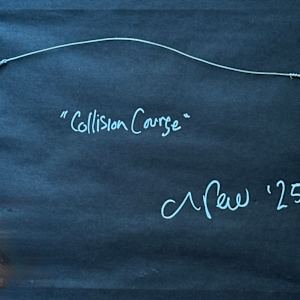 "Collision Course"
'25